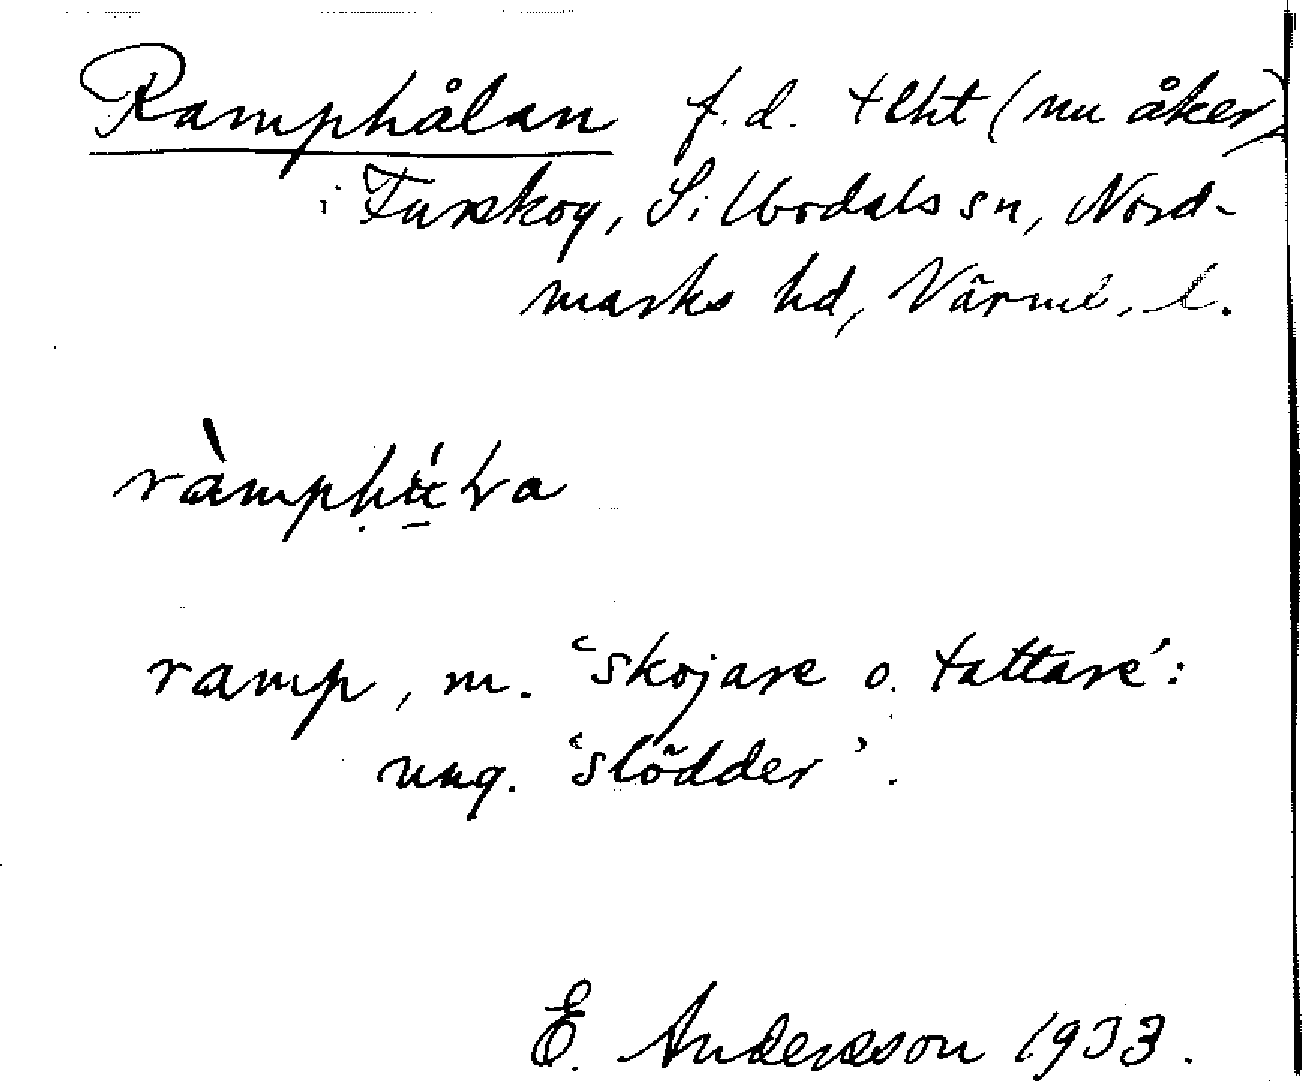 Ramphålan f.d. tlht (nu åker)
i Furskog, Silbodals sn, Nord-
marks hd, Värml. l.
ramp, m. 'skojare o. tattare':
ung. 'slödder'.
E. Andersson 1933.